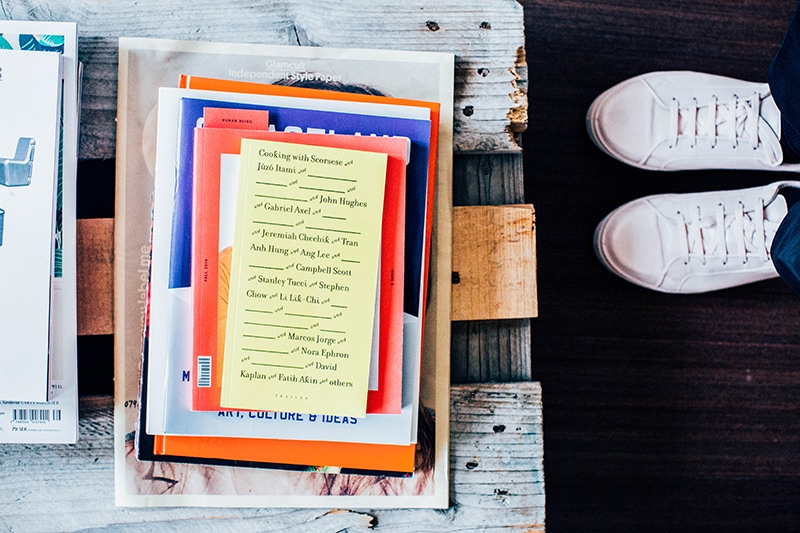 Glamcult
Independent Style Paper
HUMAN BEING
Cooking with Scorsese and
Jūzō Itami and ______
______ and ______
______ and John Hughes
and Gabriel Axel and ____
______ and ______
and Jeremiah Chechik and Tran
Anh Hung and Ang Lee and ____
______ and Campbell Scott
and Stanley Tucci and Stephen
Chow and Li Lik-Chi and ____
______ and ______
______ and ______
____ and Marcos Jorge and
______ and Nora Ephron
and ______ and David
Kaplan and Fatih Akin and others
FALL 2014
ART, CULTURE & IDEAS
079
79 SEK